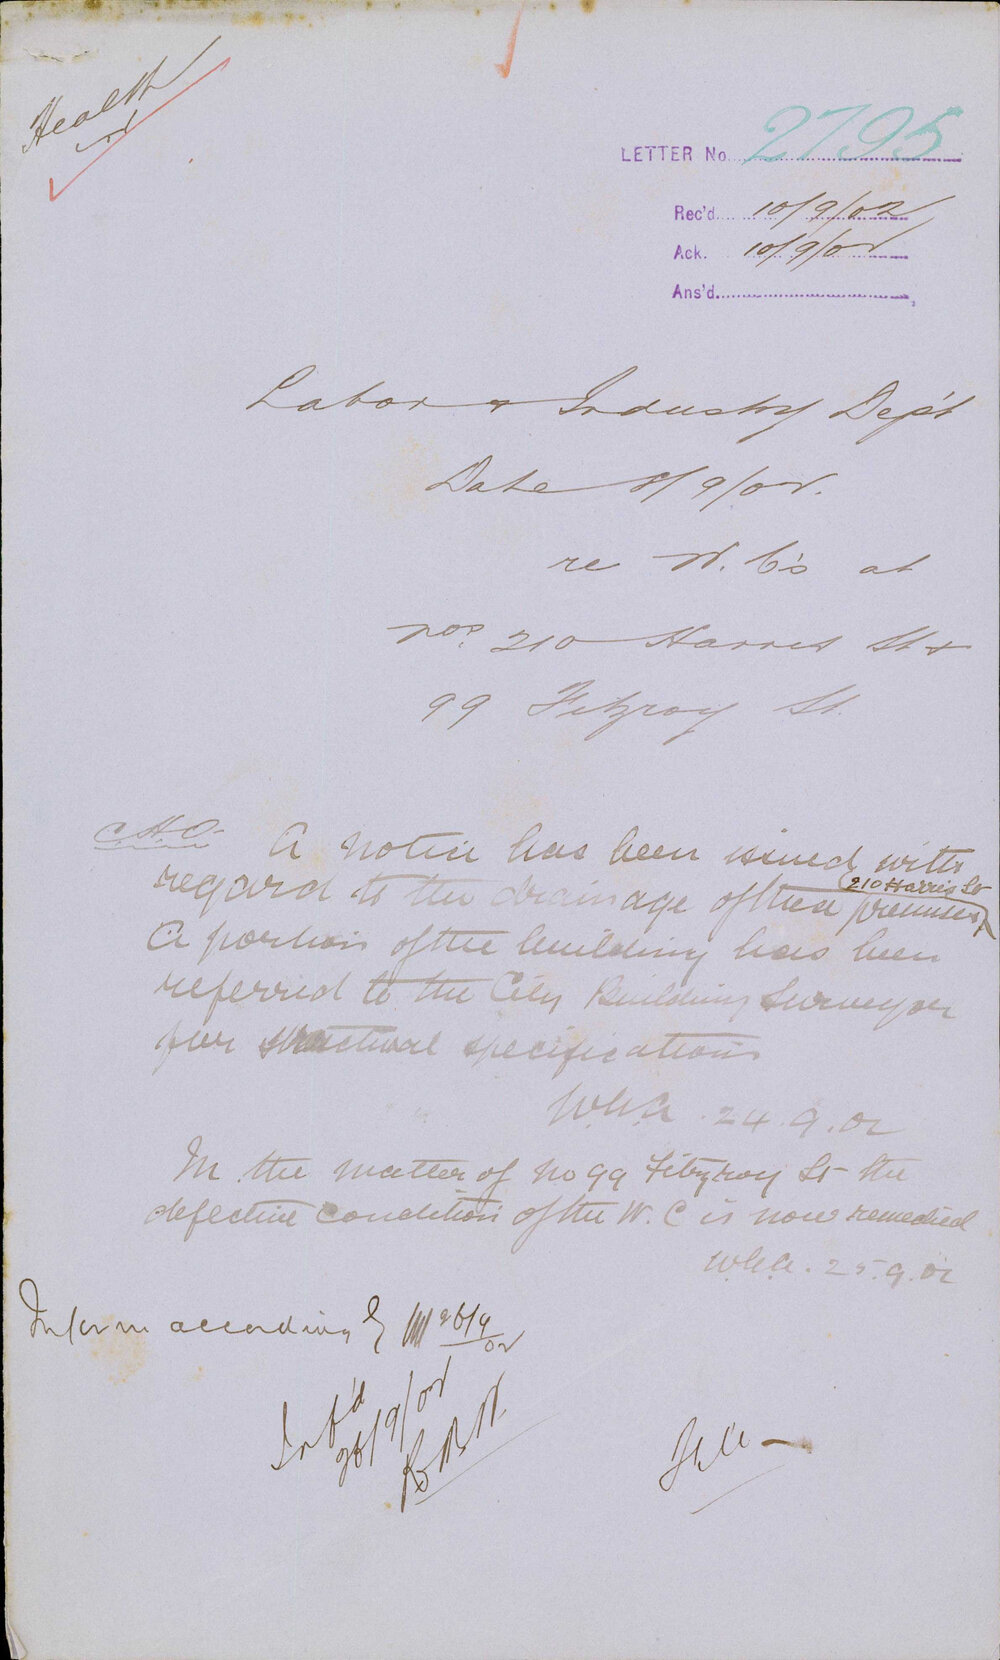 Health
LETTER No. 2795
Rec'd. 10/9/02
Ack. 10/9/02
Ans'd.
Labor & Industry Dep't
Date 8/9/02.
re W.C's at
nos. 210 Harris St &
99 Fitzroy St.
C.H.O. A notice has been issued with
regard to the drainage of these premises (210 Harris St)
A portion of the building has been
referred to the City Building Surveyor
for structural specifications
24.9.02
In the matter of No 99 Fitzroy St the
defective condition of the W.C is now remedied
25.9.02
Inform accordingly 26/9/02
Inf'd
26/9/02